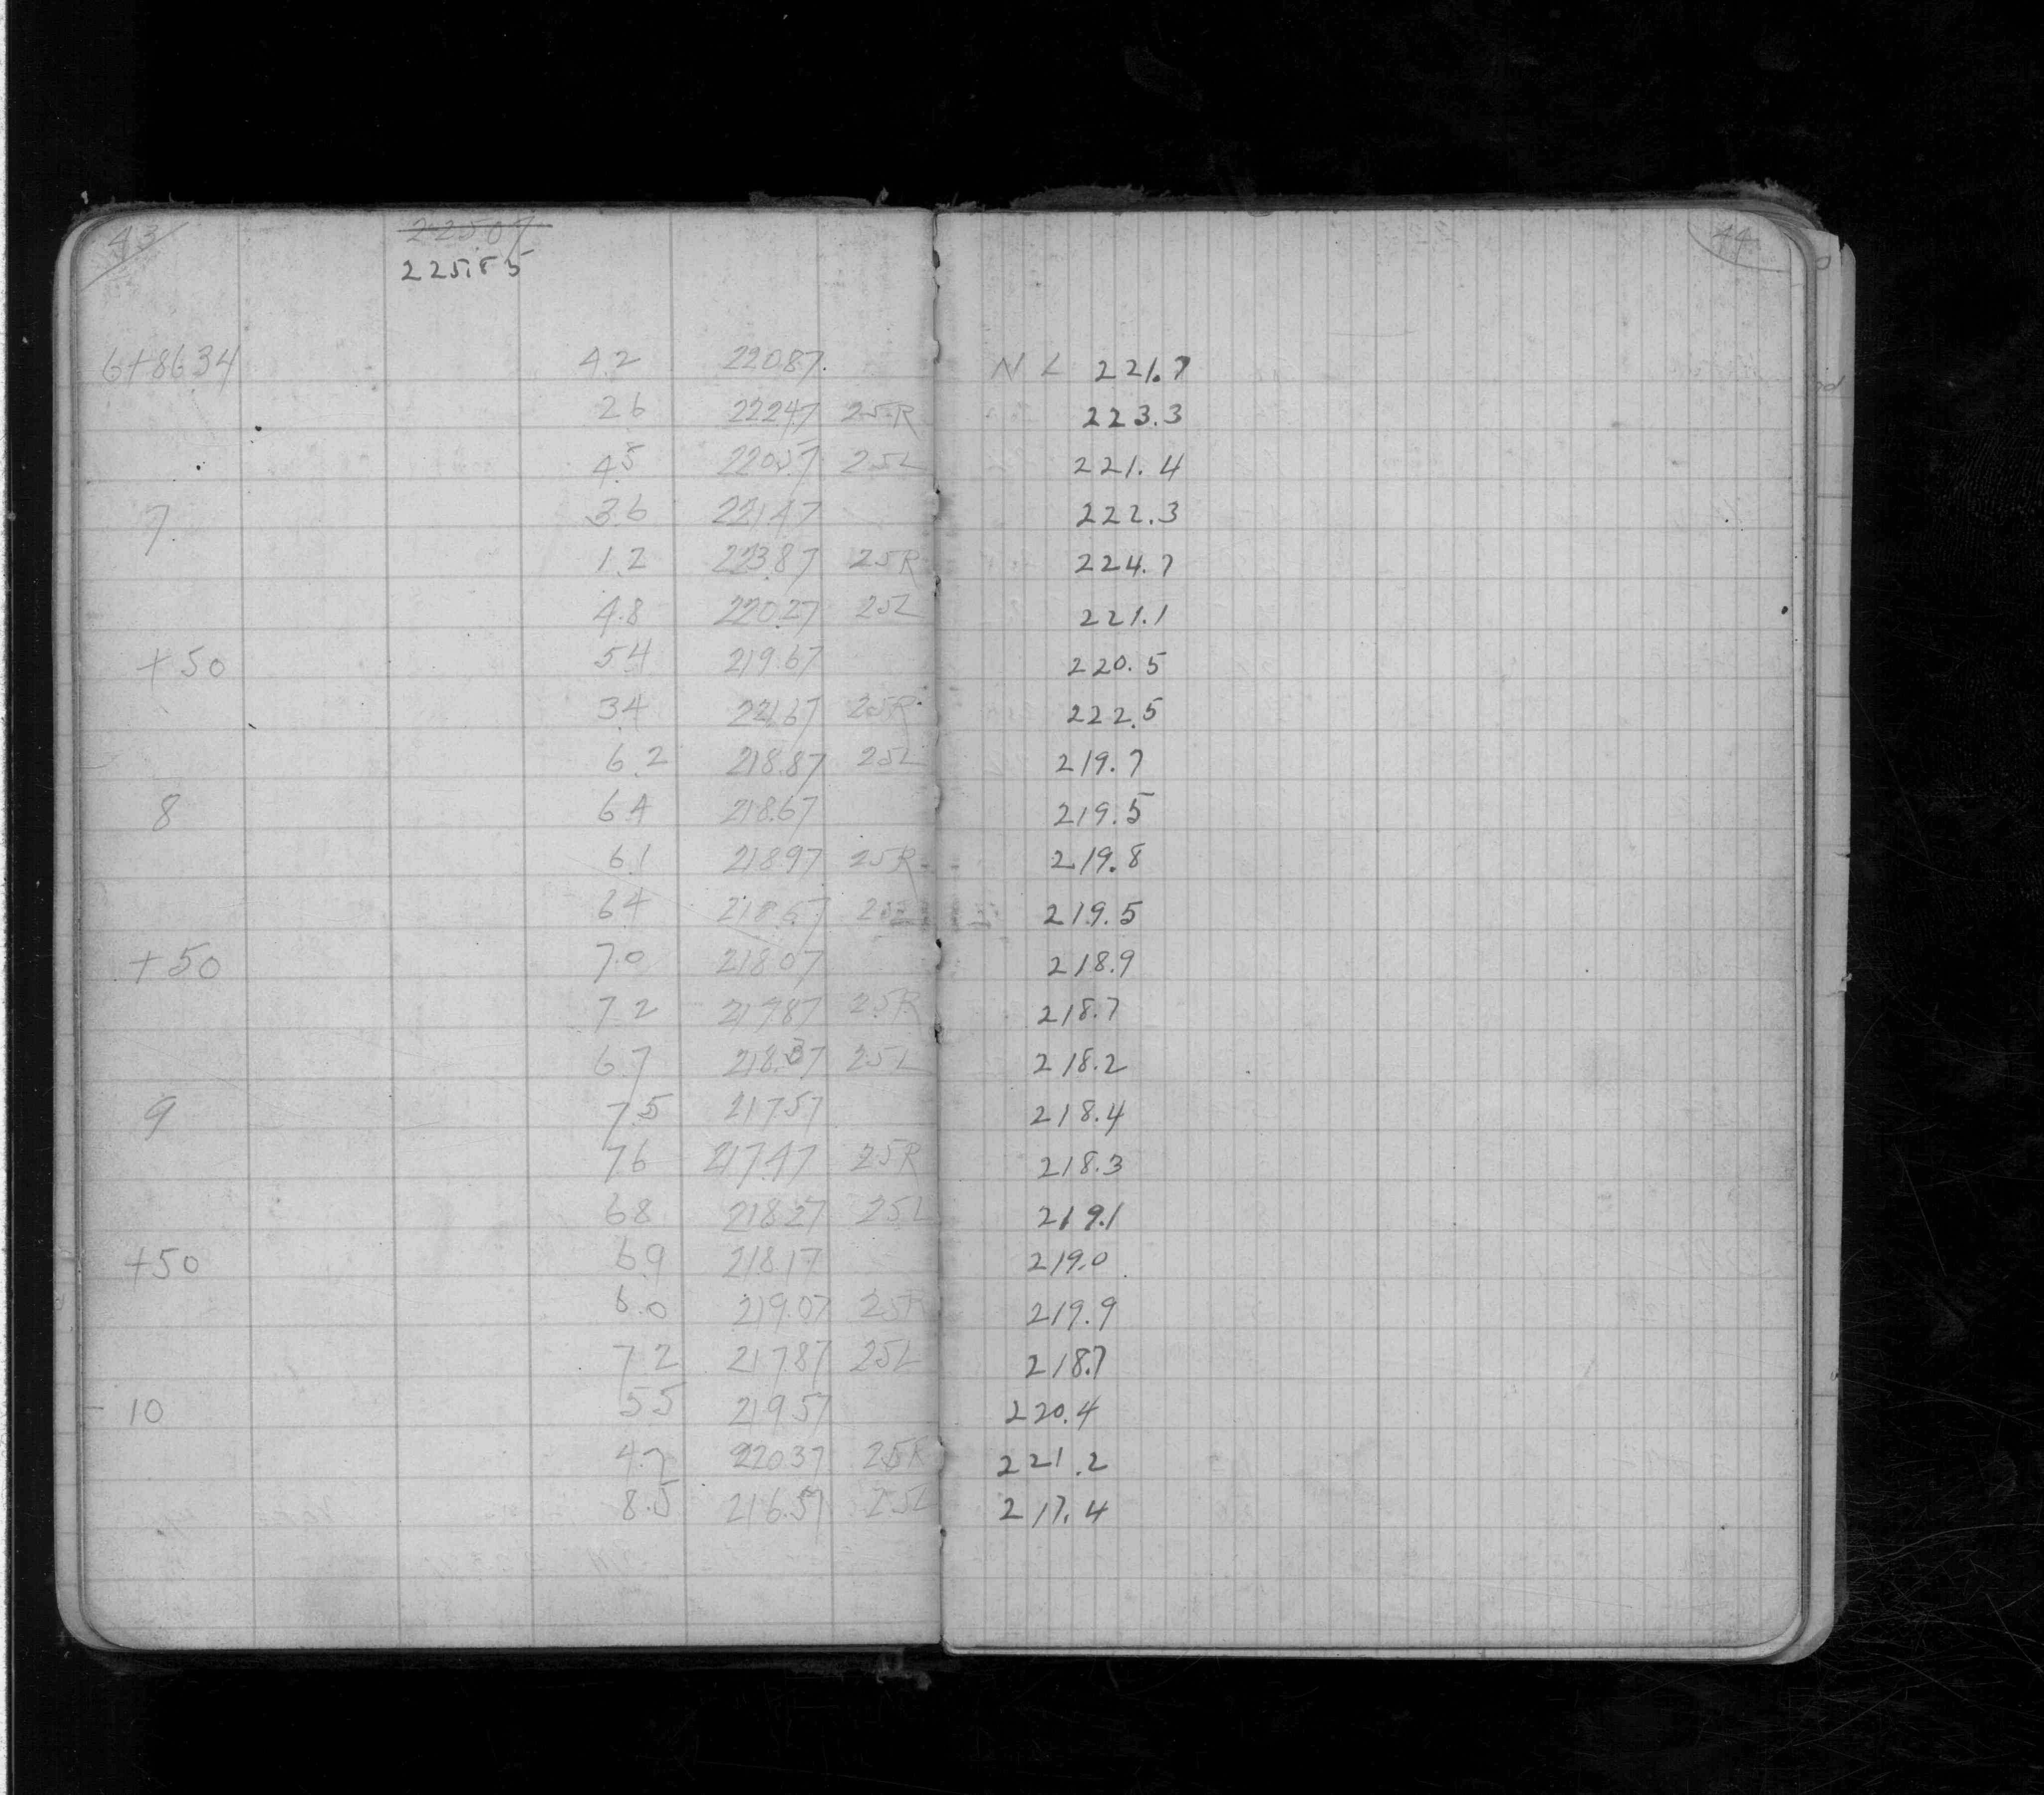 43
22507
225.85
6+86.34 4.2 220.87 N L 221.7
2.6 222.47 25R 223.3
4.5 220.57 25L 221.4
7 3.6 221.47 222.3
1.2 223.87 25R 224.7
4.8 220.27 25L 221.1
+50 5.4 219.67 220.5
3.4 221.67 25R 222.5
6.2 218.87 25L 219.7
8 6.4 218.67 219.5
6.1 218.97 25R 219.8
6.4 218.67 25L 219.5
+50 7.0 218.07 218.9
7.2 217.87 25R 218.7
6.7 218.37 25L 218.2
9 7.5 217.57 218.4
7.6 217.47 25R 218.3
6.8 218.27 25L 219.1
+50 6.9 218.17 219.0
6.0 219.07 25R 219.9
7.2 217.87 25L 218.7
10 5.5 219.57 220.4
4.7 220.37 25R 221.2
8.5 216.57 25L 217.4
44